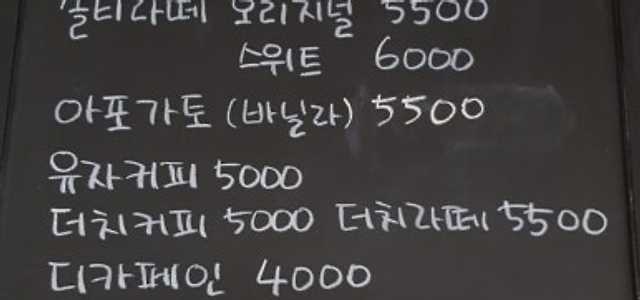 솔티라떼 오리지널 5500
스위트 6000
아포가토 (바닐라) 5500
유자커피 5000
더치커피 5000 더치라떼 5500
디카페인 4000